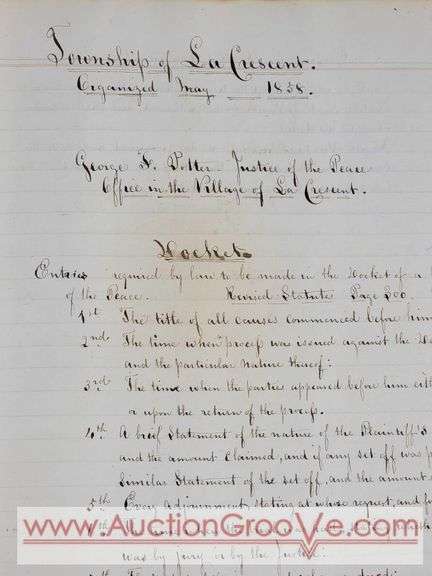 Township of La Crescent.
Organized May 1858.
George F. Potter Justice of the Peace
Office in the Village of La Crescent.
Docket
Entries required by law to be made in the Docket of a
of the Peace. Revised Statute Page 200.
1st The title of all causes commenced before him
2nd The time when process was issued against the
and the particular nature thereof:
3rd The time when the parties appeared before him
or upon the return of the process.
4th A brief Statement of the nature of the Plaintiff's
and the amount Claimed, and if any set off was
Similar Statement of the set off, and the amount
5th Every adjournment, stating at whose request, and
www.AuctionGrooVe.com
6th
was by jury or by the Justice: